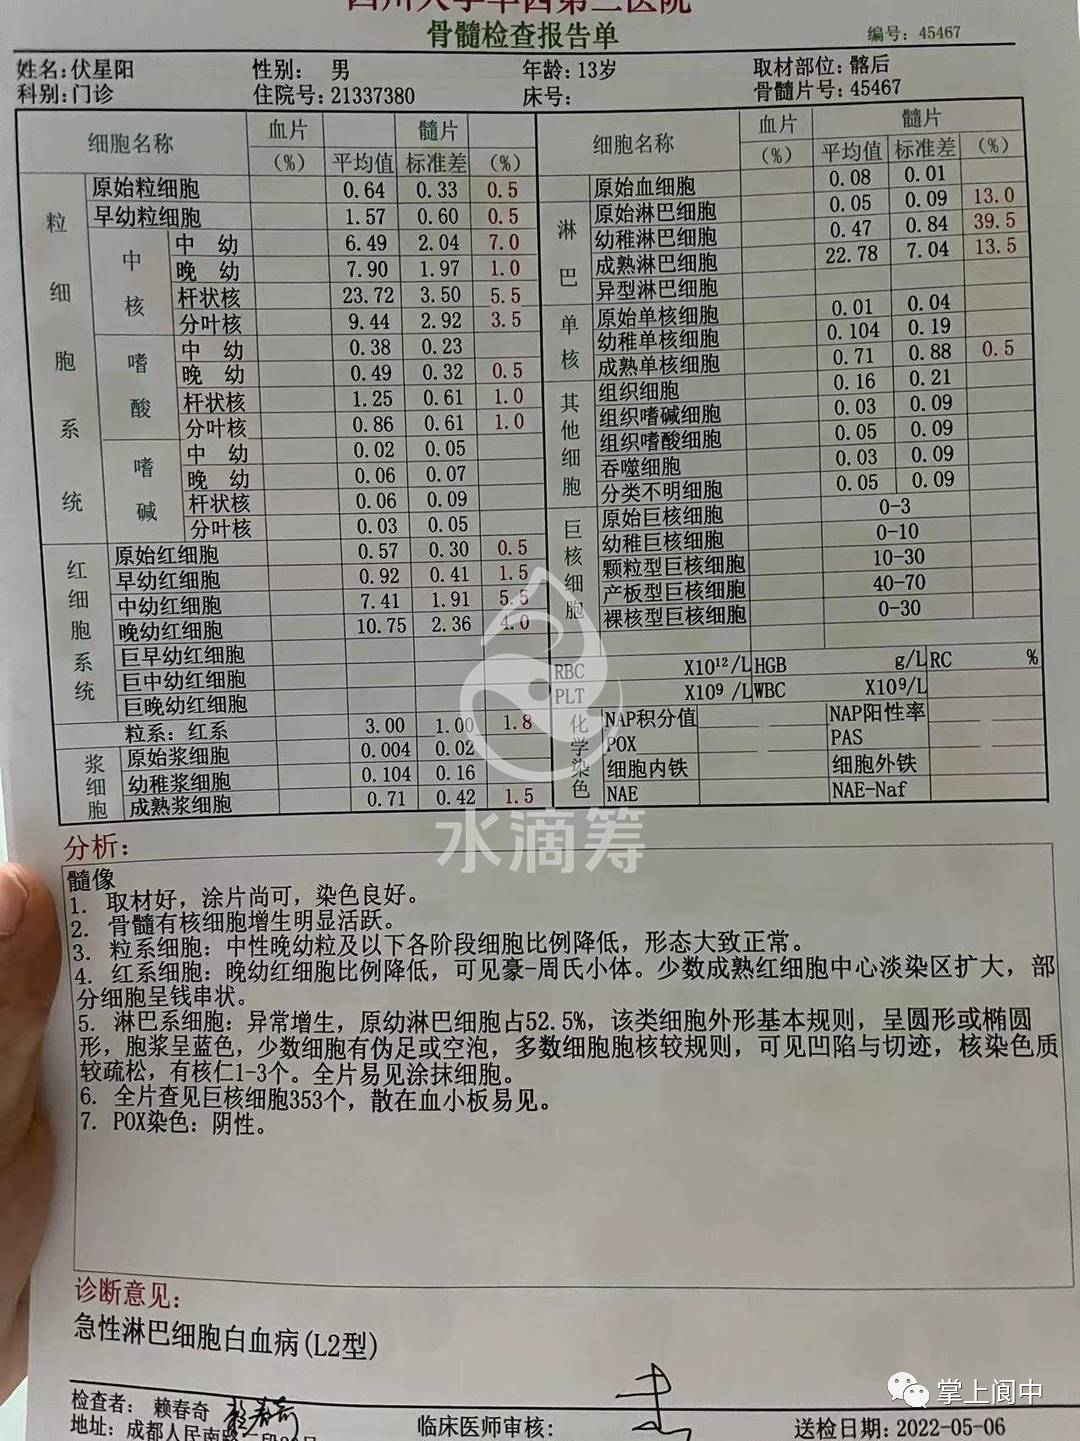 四川大学华西第二医院
骨髓检查报告单
编号: 45467
姓名:伏星阳 性别: 男 年龄:13岁 取材部位:髂后
科别:门诊 住院号:21337380 床号: 骨髓片号:45467
细胞名称 血片 髓片 细胞名称 血片 髓片
(%) 平均值 标准差 (%) (%) 平均值 标准差 (%)
粒细胞系统
原始粒细胞 0.64 0.33 0.5
早幼粒细胞 1.57 0.60 0.5
中核
中 幼 6.49 2.04 7.0
晚 幼 7.90 1.97 1.0
杆状核 23.72 3.50 5.5
分叶核 9.44 2.92 3.5
嗜酸
中 幼 0.38 0.23
晚 幼 0.49 0.32 0.5
杆状核 1.25 0.61 1.0
分叶核 0.86 0.61 1.0
嗜碱
中 幼 0.02 0.05
晚 幼 0.06 0.07
杆状核 0.06 0.09
分叶核 0.03 0.05
红细胞系统
原始红细胞 0.57 0.30 0.5
早幼红细胞 0.92 0.41 1.5
中幼红细胞 7.41 1.91 5.5
晚幼红细胞 10.75 2.36 4.0
巨早幼红细胞
巨中幼红细胞
巨晚幼红细胞
粒系:红系 3.00 1.00 1.8
浆细胞
原始浆细胞 0.004 0.02
幼稚浆细胞 0.104 0.16
成熟浆细胞 0.71 0.42 1.5
原始血细胞 0.08 0.01
淋巴
原始淋巴细胞 0.05 0.09 13.0
幼稚淋巴细胞 0.47 0.84 39.5
成熟淋巴细胞 22.78 7.04 13.5
异型淋巴细胞
单核
原始单核细胞 0.01 0.04
幼稚单核细胞 0.104 0.19
成熟单核细胞 0.71 0.88 0.5
其他细胞
组织细胞 0.16 0.21
组织嗜碱细胞 0.03 0.09
组织嗜酸细胞 0.05 0.09
吞噬细胞 0.03 0.09
分类不明细胞 0.05 0.09
巨核细胞
原始巨核细胞 0-3
幼稚巨核细胞 0-10
颗粒型巨核细胞 10-30
产板型巨核细胞 40-70
裸核型巨核细胞 0-30
RBC X10¹²/L HGB g/L RC %
PLT X10⁹ /L WBC X10⁹/L
化学染色
NAP积分值 NAP阳性率
POX PAS
细胞内铁 细胞外铁
NAE NAE-Naf
水滴筹
分析:
髓像
1. 取材好，涂片尚可，染色良好。
2. 骨髓有核细胞增生明显活跃。
3. 粒系细胞: 中性晚幼粒及以下各阶段细胞比例降低，形态大致正常。
4. 红系细胞: 晚幼红细胞比例降低，可见豪-周氏小体。少数成熟红细胞中心淡染区扩大，部
分细胞呈钱串状。
5. 淋巴系细胞: 异常增生，原幼淋巴细胞占52.5%，该类细胞外形基本规则，呈圆形或椭圆
形，胞浆呈蓝色，少数细胞有伪足或空泡，多数细胞胞核较规则，可见凹陷与切迹，核染色质
较疏松，有核仁1-3个。全片易见涂抹细胞。
6. 全片查见巨核细胞353个，散在血小板易见。
7. POX染色: 阴性。
诊断意见:
急性淋巴细胞白血病(L2型)
检查者: 赖春奇 赖春奇
地址: 成都人民南路
临床医师审核:
送检日期: 2022-05-06
掌上阆中